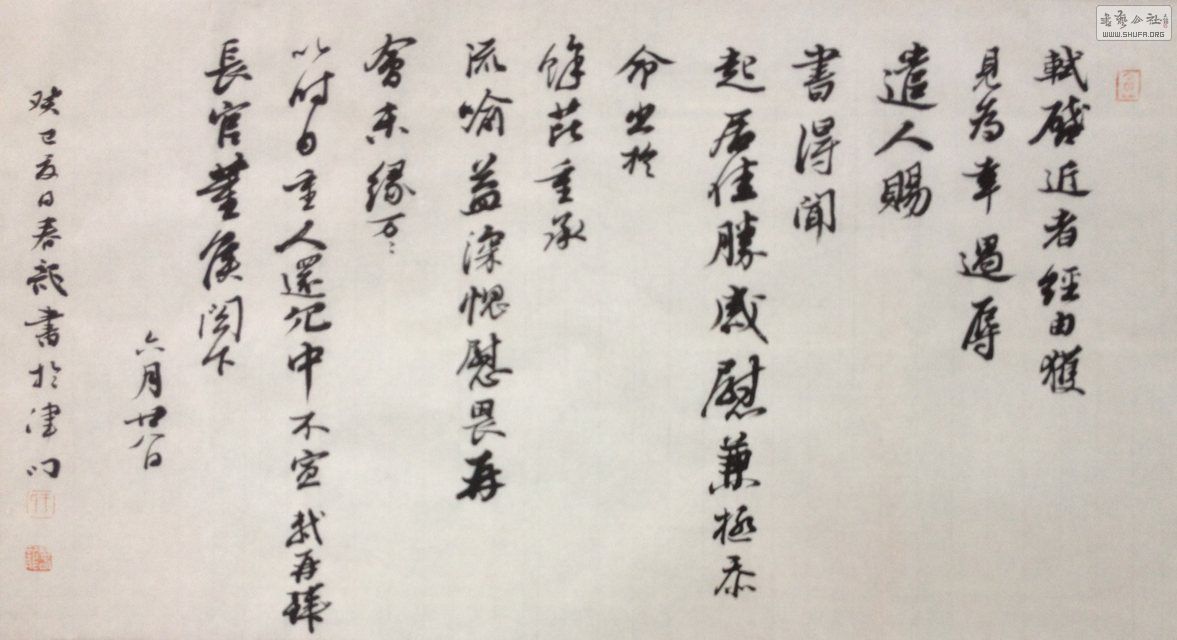 軾啟近者經由獲
見為幸過辱
遣人賜
書得聞
起居佳勝感慰兼極忝
命出於
餘芘重承
流喻益深愧慰畏再
會未緣万〻
以時自重人還冗中不宣 軾再拜
長官董侯閣下
六月廿八日
癸巳夏日春龍書於津門
書藝公社
WWW.SHUFA.ORG